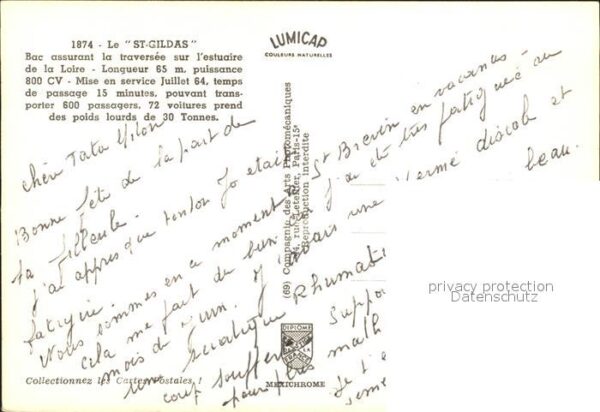 1874 - Le "ST-GILDAS"
Bac assurant la traversée sur l'estuaire
de la Loire - Longueur 65 m, puissance
800 CV - Mise en service Juillet 64, temps
de passage 15 minutes, pouvant trans-
porter 600 passagers, 72 voitures prend
des poids lourds de 30 Tonnes.
LUMICAP
COULEURS NATURELLES
(69) Compagnie des Arts Photomécaniques
Paris-15e
Reproduction Interdite
chère Tata
Bonne fête de la part de
ta filleule.
J'ai appris que tonton Jo etait
fatigué.
Nous sommes en ce moment à St Brevin en vacances -
Cela me fait du bien j'ai été très fatiguée au
mois de Juin. J'avais une
et
une sciatique Rhumati
beau.
coup souffert
Suppo
pour
malh
Je t'e
DIPLOME
MEXICHROME
Collectionnez les Cartes Postales !
privacy protection
Datenschutz